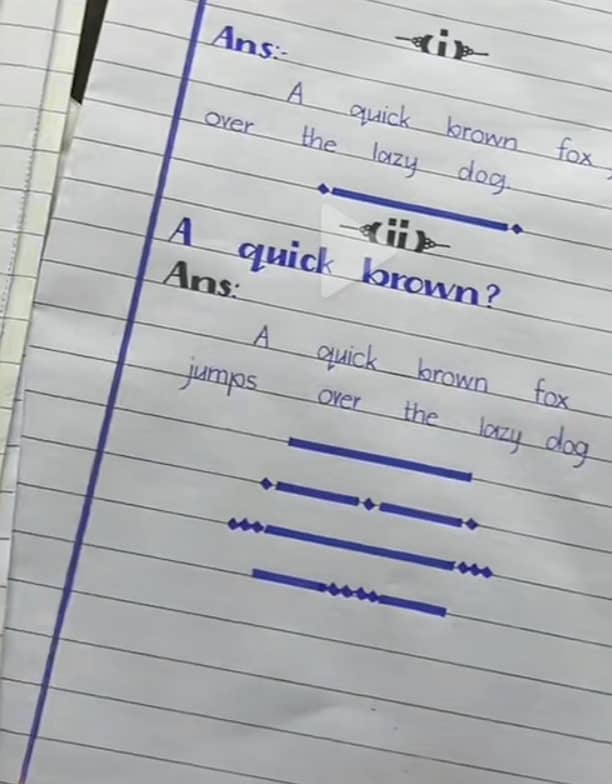 (i)
Ans:-
A quick brown fox
over the lazy dog.
(ii)
A quick brown?
Ans:
A quick brown fox
jumps over the lazy dog